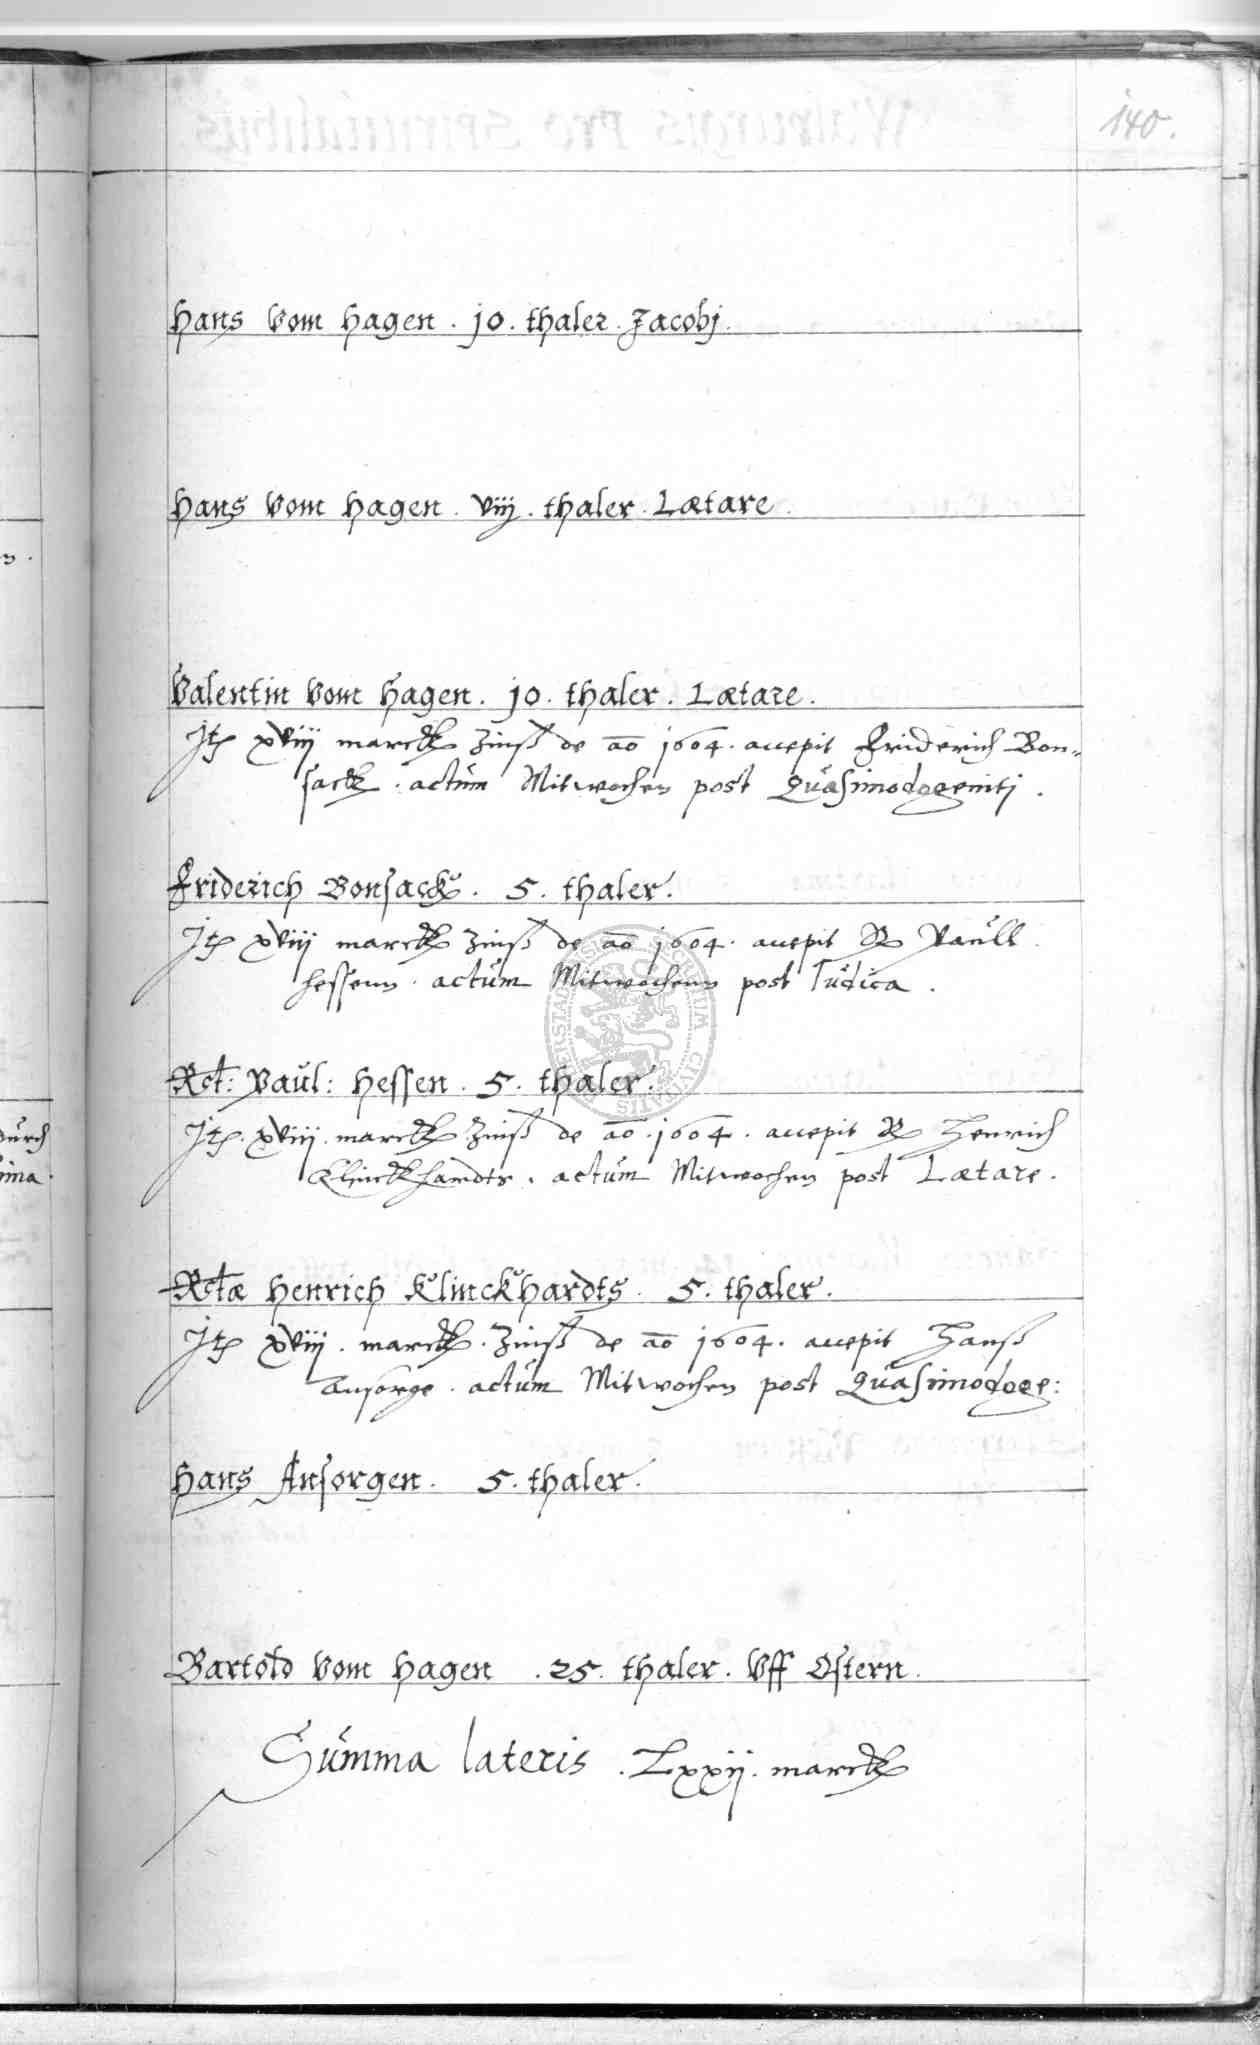 140.
Hans Vom Hagen . 10 . thaler . Jacobj .
Hans Vom Hagen . Viij . thaler . Lætare .
Valentin Vom Hagen . 10 . thaler . Lætare .
Jtem xviij marck Zinß de ao 1604 . accepit Friderich Bon-
sack . actum Mitwochen post Quasimodogenitj .
Friderich Bonsack . 5 . thaler .
Jtem xviij marck Zinß de ao 1604 . accepit R Paull
Hessenn . actum Mitwochenn post Judica .
Rct : Paul : Hessen . 5 . thaler .
Jtem . xviij . marck Zinß de ao . 1604 . accepit R Henrich
Klinckhardts . actum Mitwochen post Lætare .
Rctæ Henrich Klinckhardts . 5 . thaler .
Jtem xviij . marck . Zinß de ao 1604 . accepit Hanß
Ansorge . actum Mitwochen post Quasimodoge :
Hans Ansorgen . 5 . thaler .
Bartold Vom Hagen . 25 . thaler . Vff Ostern .
Summa lateris . Lxxij . marck
durch